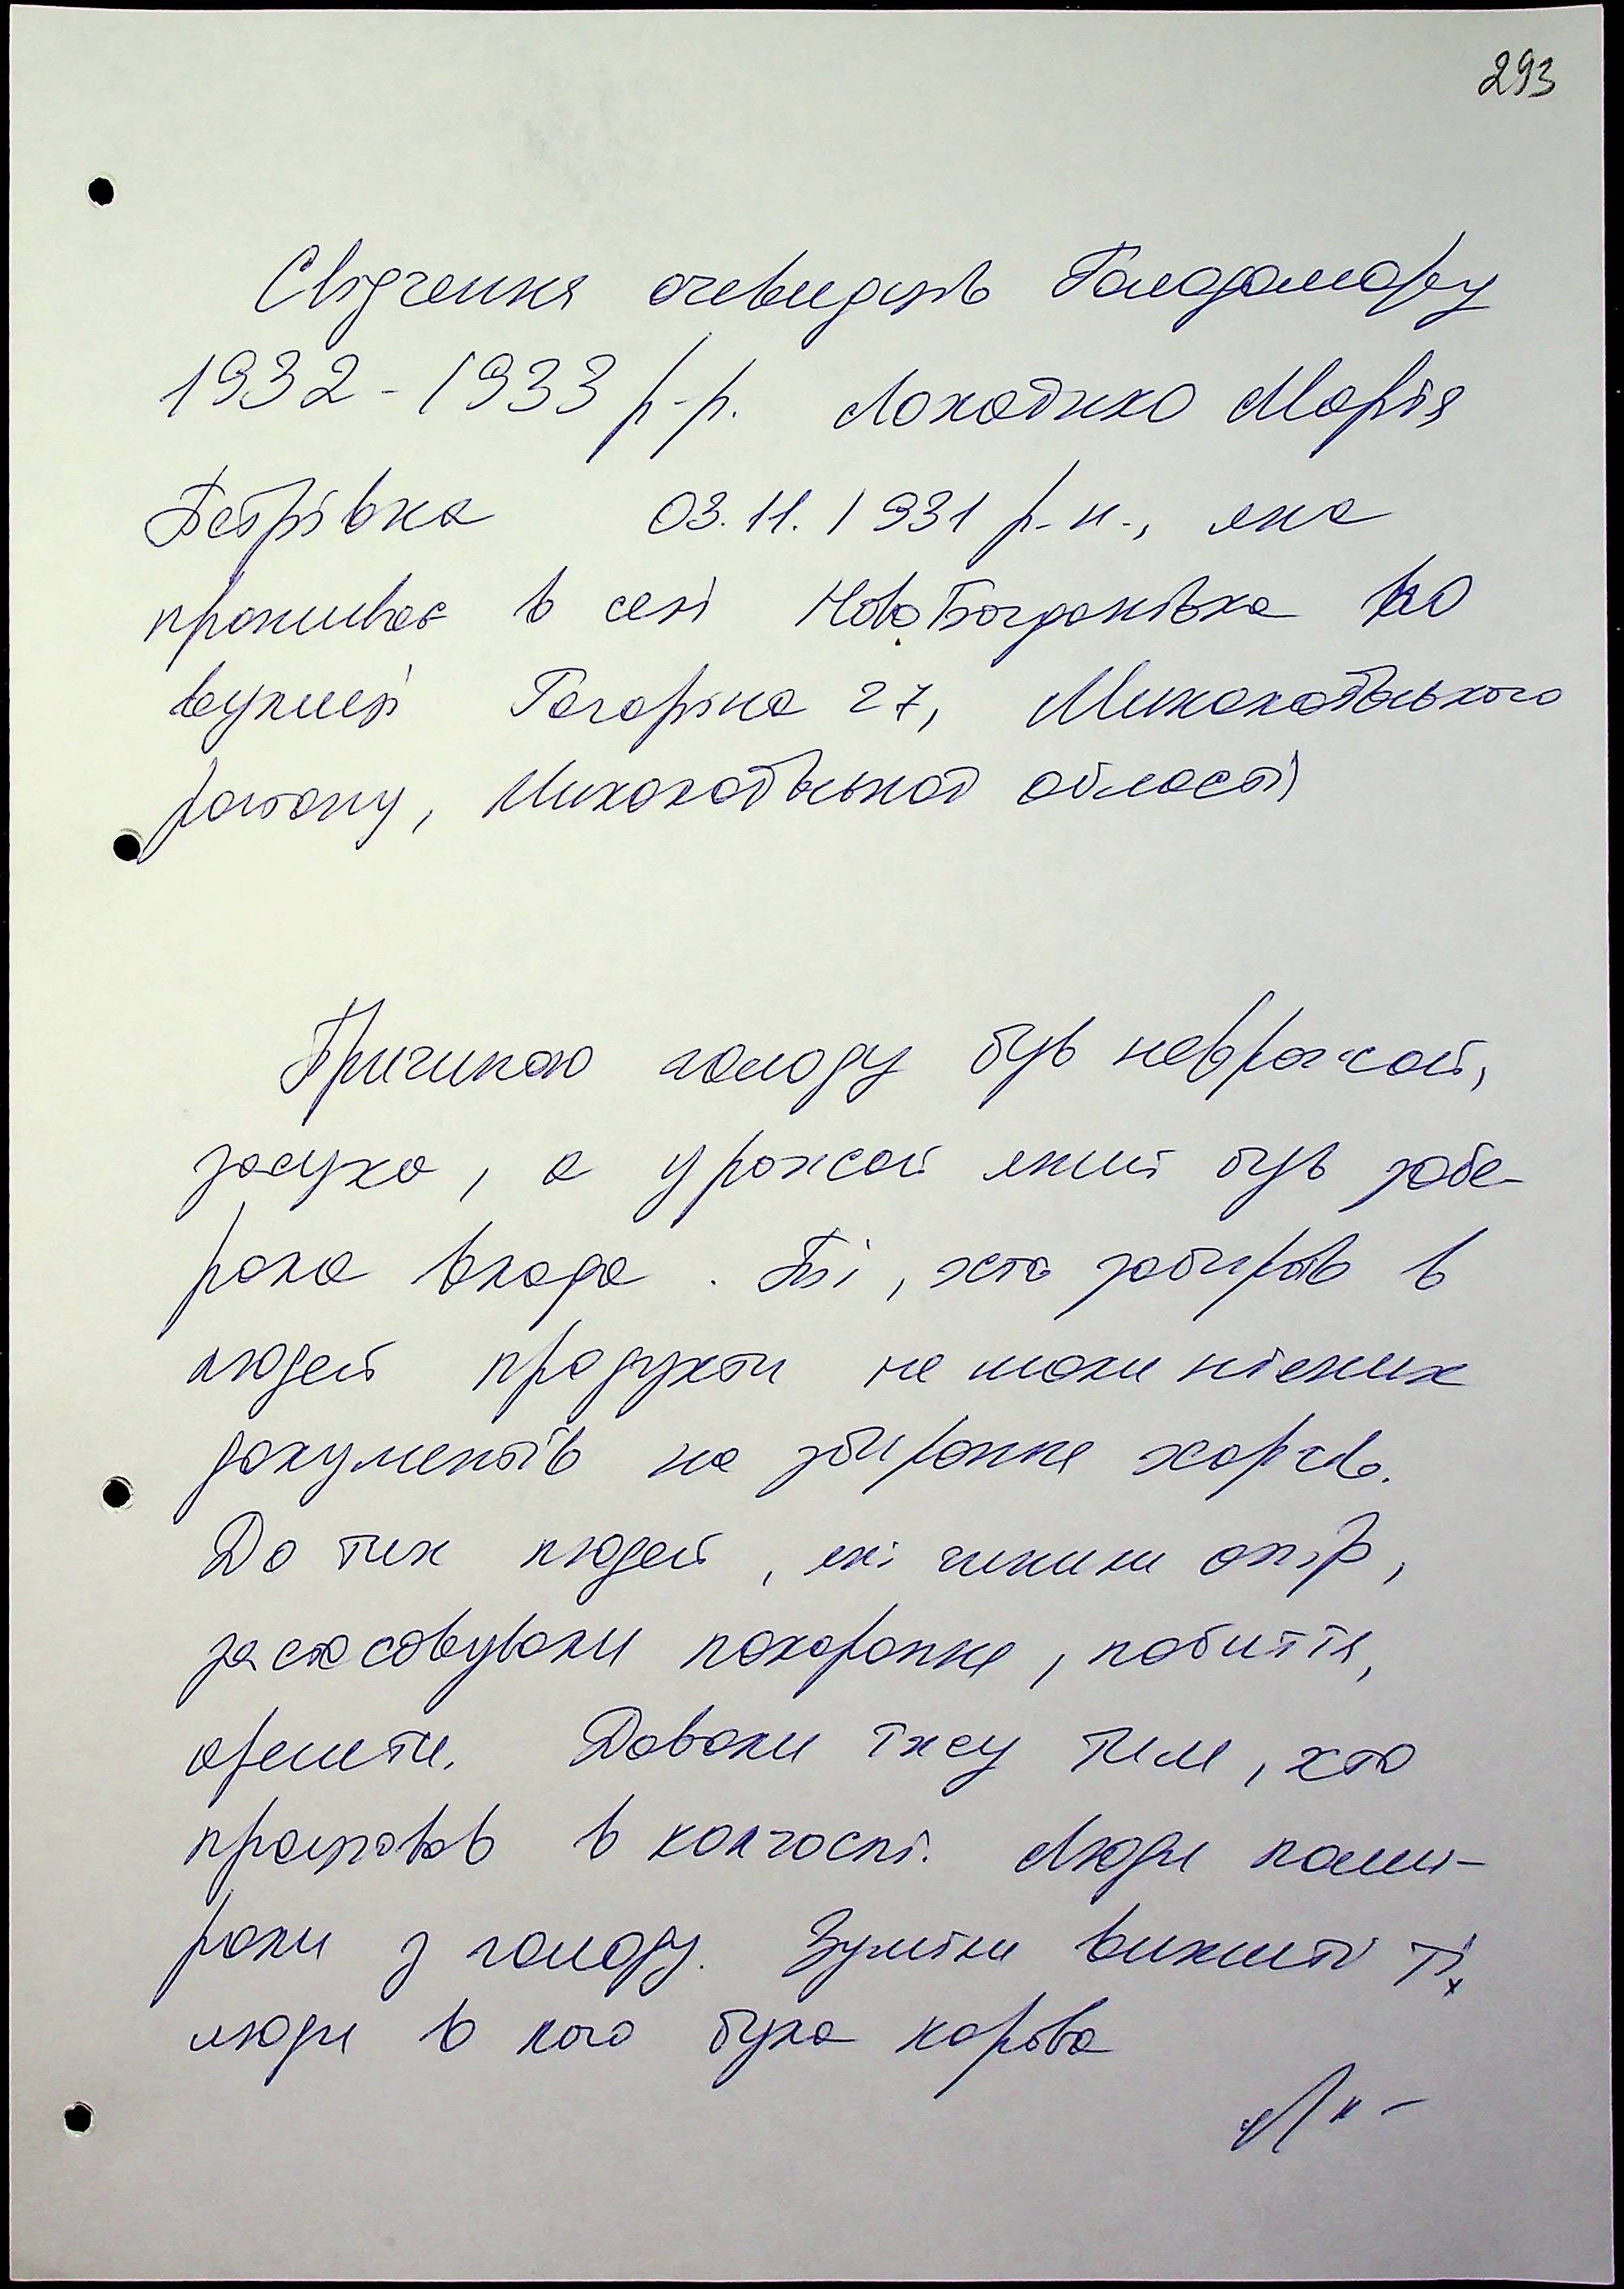 293
Свідчення очевидців Голодомору
1932 - 1933 р-р. Марія
Петрівна 03.11.1931 р.н., яка
проживає в селі НовоБогданівка по
вулиці Гагаріна 27, Миколаївського
району, Миколаївської області
Причиною голоду був неврожай,
засуха, а урожай який був забе-
рала влада. Ті, хто забирав в
людей продукти не мали ніяких
документів на збирання харчів.
До тих людей, які чинили опір,
застосовували покарання, побиття,
арешти. Давали їжу тим, хто
працював в колгоспі. Люди поми-
рали з голоду. Зуміли вижити ті
люди в кого була корова